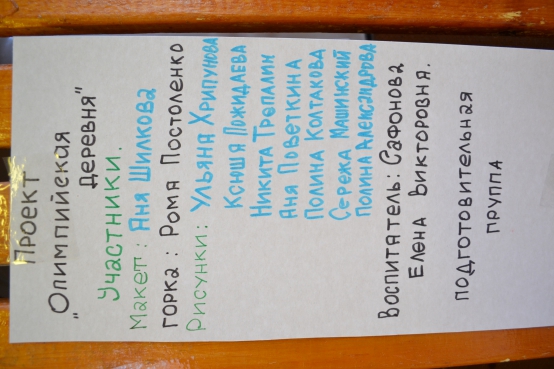 Проект
"Олимпийская
деревня"
Участники.
Макет: Аня Шилкова
горка: Рома Постоленко
Рисунки: Ульяна Хрипунова
Ксюша Пожидаева
Никита Трапалин
Аня Поветкина
Полина Колтакова
Сережа Машинский
Полина Александрова
Воспитатель: Сафонова
Елена Викторовна.
подготовительная
группа